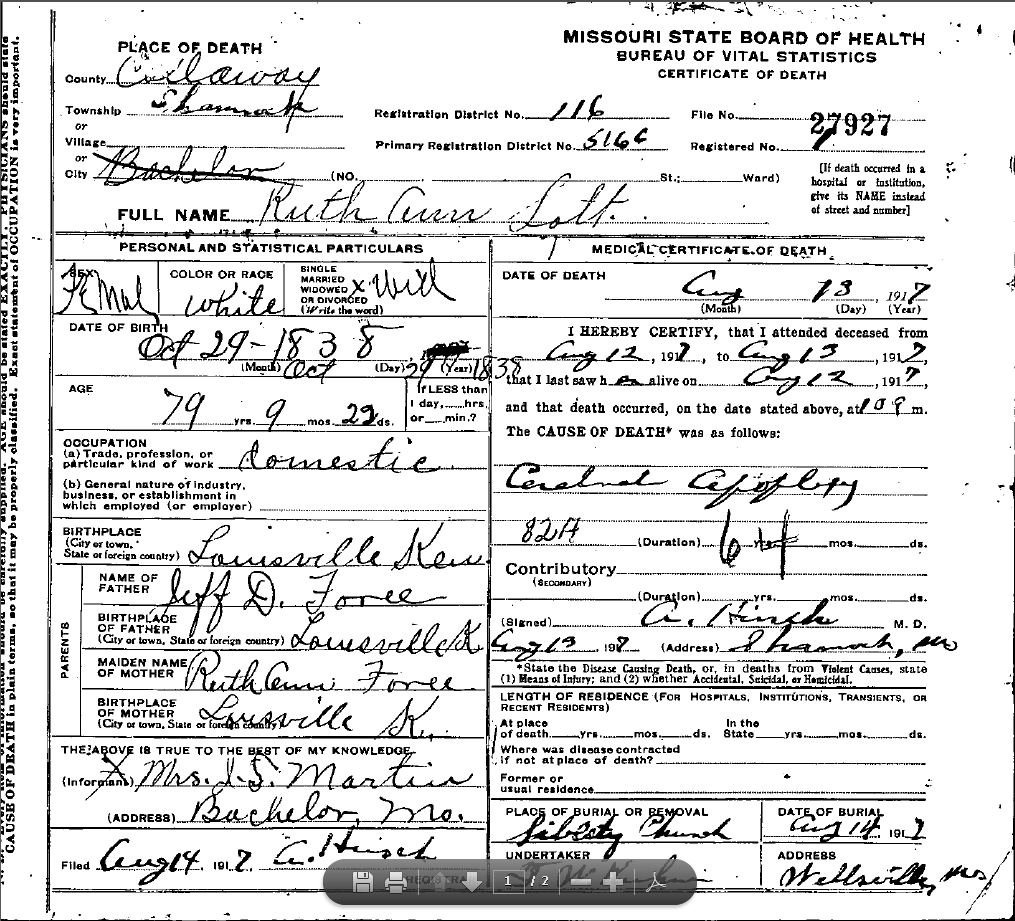 MISSOURI STATE BOARD OF HEALTH
BUREAU OF VITAL STATISTICS
CERTIFICATE OF DEATH
PLACE OF DEATH
County Callaway
Township Shamrock
or
Village
or
City Bachelor (NO. St.; Ward)
Registration District No. 116
File No. 27927
Primary Registration District No. 5166
Registered No.
[If death occurred in a
hospital or institution,
give its NAME instead
of street and number]
FULL NAME Ruth Ann Lott.
PERSONAL AND STATISTICAL PARTICULARS
SEX FeMal
COLOR OR RACE White
SINGLE
MARRIED
WIDOWED
OR DIVORCED
(Write the word) X Wid
DATE OF BIRTH
Oct 29-1838
(Month) Oct (Day) 29 (Year) 1838
AGE
79 yrs. 9 mos. 22 ds.
If LESS than
1 day, hrs.
or min.?
OCCUPATION
(a) Trade, profession, or
particular kind of work domestic
(b) General nature of industry,
business, or establishment in
which employed (or employer)
BIRTHPLACE
(City or town,
State or foreign country) Louisville Ken
PARENTS
NAME OF
FATHER Jeff D. Foree
BIRTHPLACE
OF FATHER
(City or town, State or foreign country) Louisville K
MAIDEN NAME
OF MOTHER Ruth Ann Foree
BIRTHPLACE
OF MOTHER
(City or town, State or foreign country) Louisville K.
THE ABOVE IS TRUE TO THE BEST OF MY KNOWLEDGE
(Informant) Mrs. J. S. Martin
(ADDRESS) Bachelor, Mo.
Filed Aug 14. 1917. A. Hinsch
REGISTRAR
MEDICAL CERTIFICATE OF DEATH
DATE OF DEATH
Aug 13, 1917
(Month) (Day) (Year)
I HEREBY CERTIFY, that I attended deceased from
Aug 12, 1917, to Aug 13, 1917,
that I last saw h er alive on Aug 12, 1917,
and that death occurred, on the date stated above, at 109 m.
The CAUSE OF DEATH* was as follows:
Cerebral Apoplexy
82A
(Duration) mos. ds.
Contributory
(SECONDARY)
(Duration) yrs. mos. ds.
(Signed) A. Hinsch M. D.
Aug 13 1917 (Address) Shamrock, Mo
*State the Disease Causing Death, or, in deaths from Violent Causes, state
(1) Means of Injury; and (2) whether Accidental, Suicidal, or Homicidal.
LENGTH OF RESIDENCE (FOR HOSPITALS, INSTITUTIONS, TRANSIENTS, OR
RECENT RESIDENTS)
At place
of death yrs. mos. ds.
In the
State yrs. mos. ds.
Where was disease contracted
if not at place of death?
Former or
usual residence
PLACE OF BURIAL OR REMOVAL
Liberty Church
DATE OF BURIAL
Aug 14 1917
UNDERTAKER
ADDRESS
Wellsville, Mo
CAUSE OF DEATH in plain terms, so that it may be properly classified. Exact statement of OCCUPATION is very important.
AGE should be stated EXACTLY. PHYSICIANS should state
1 / 2